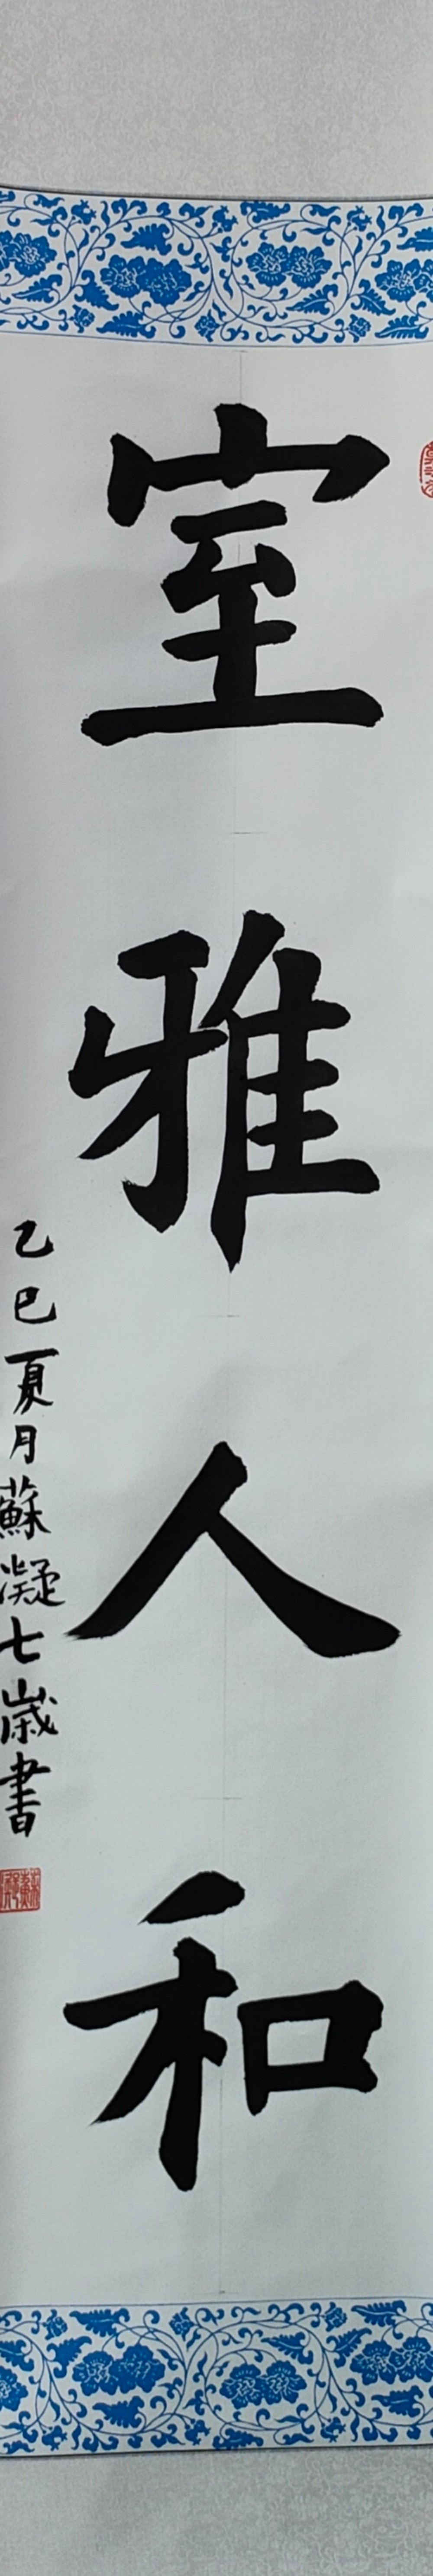 室雅人和
乙巳夏月蘇凝七歳書